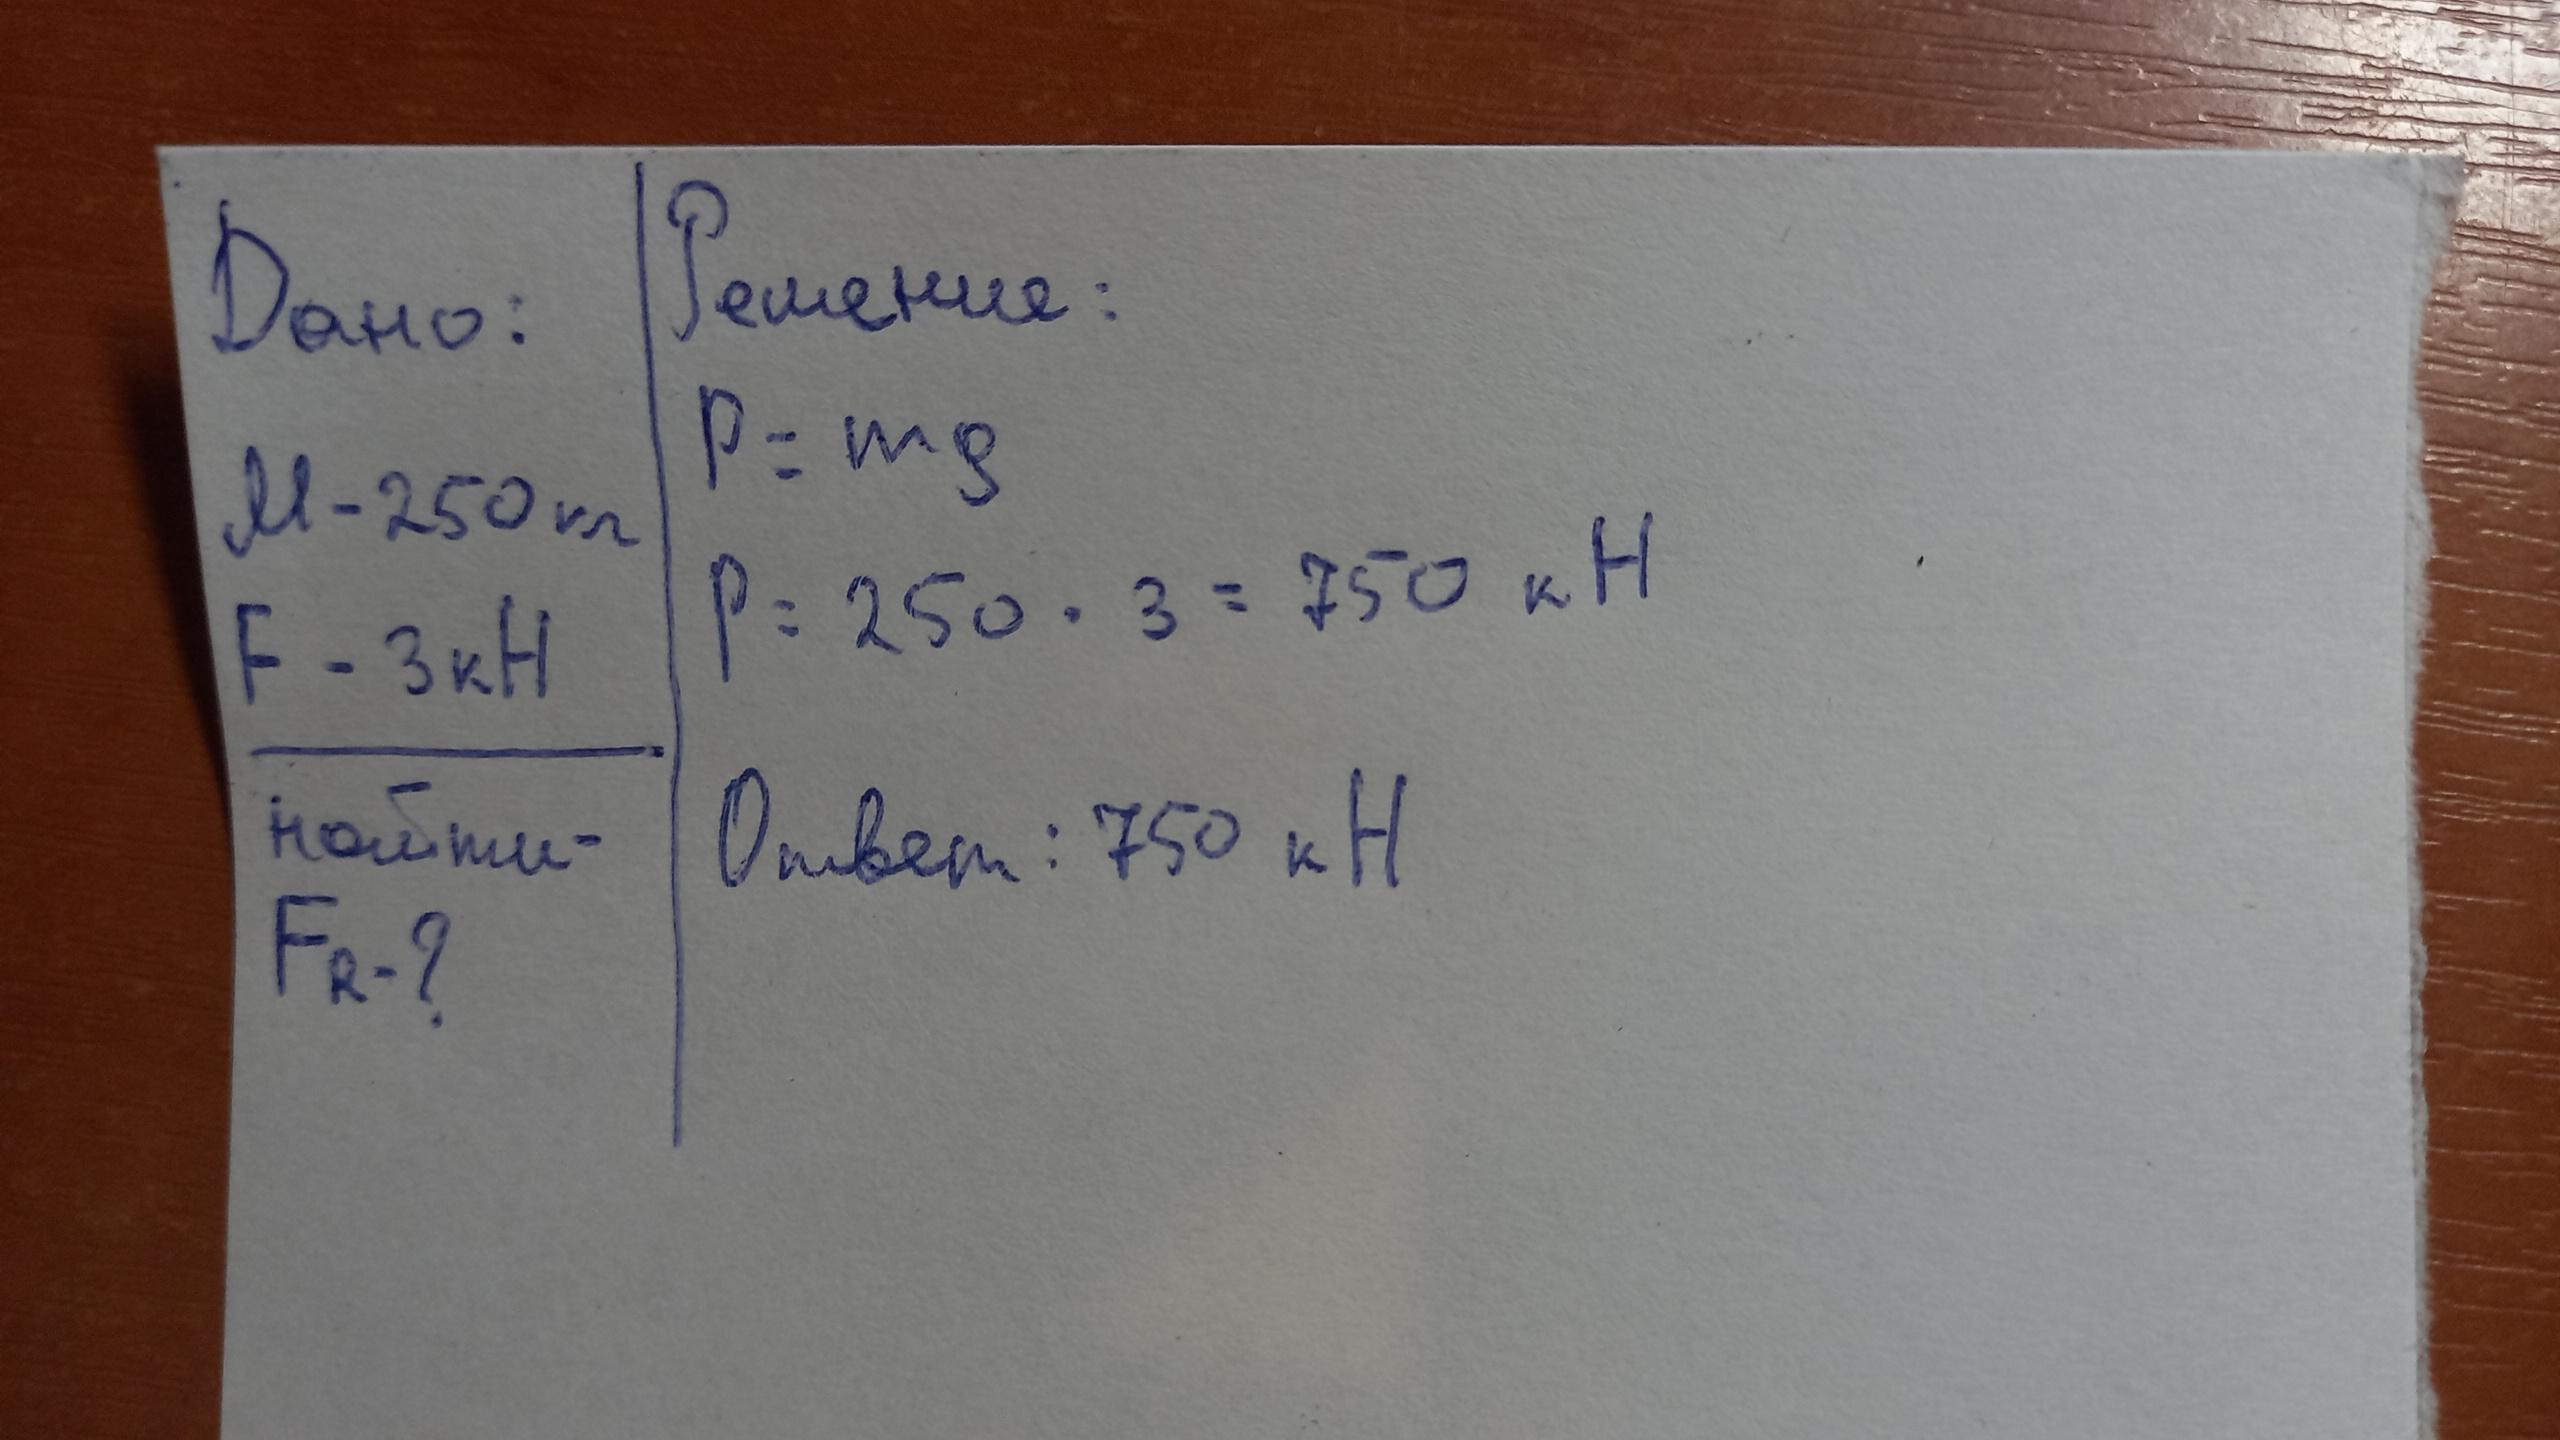 Дано:
М - 250 кг
F - 3 кН
найти-
FR - ?
Решение:
P = mg
P = 250 · 3 = 750 кН
Ответ: 750 кН